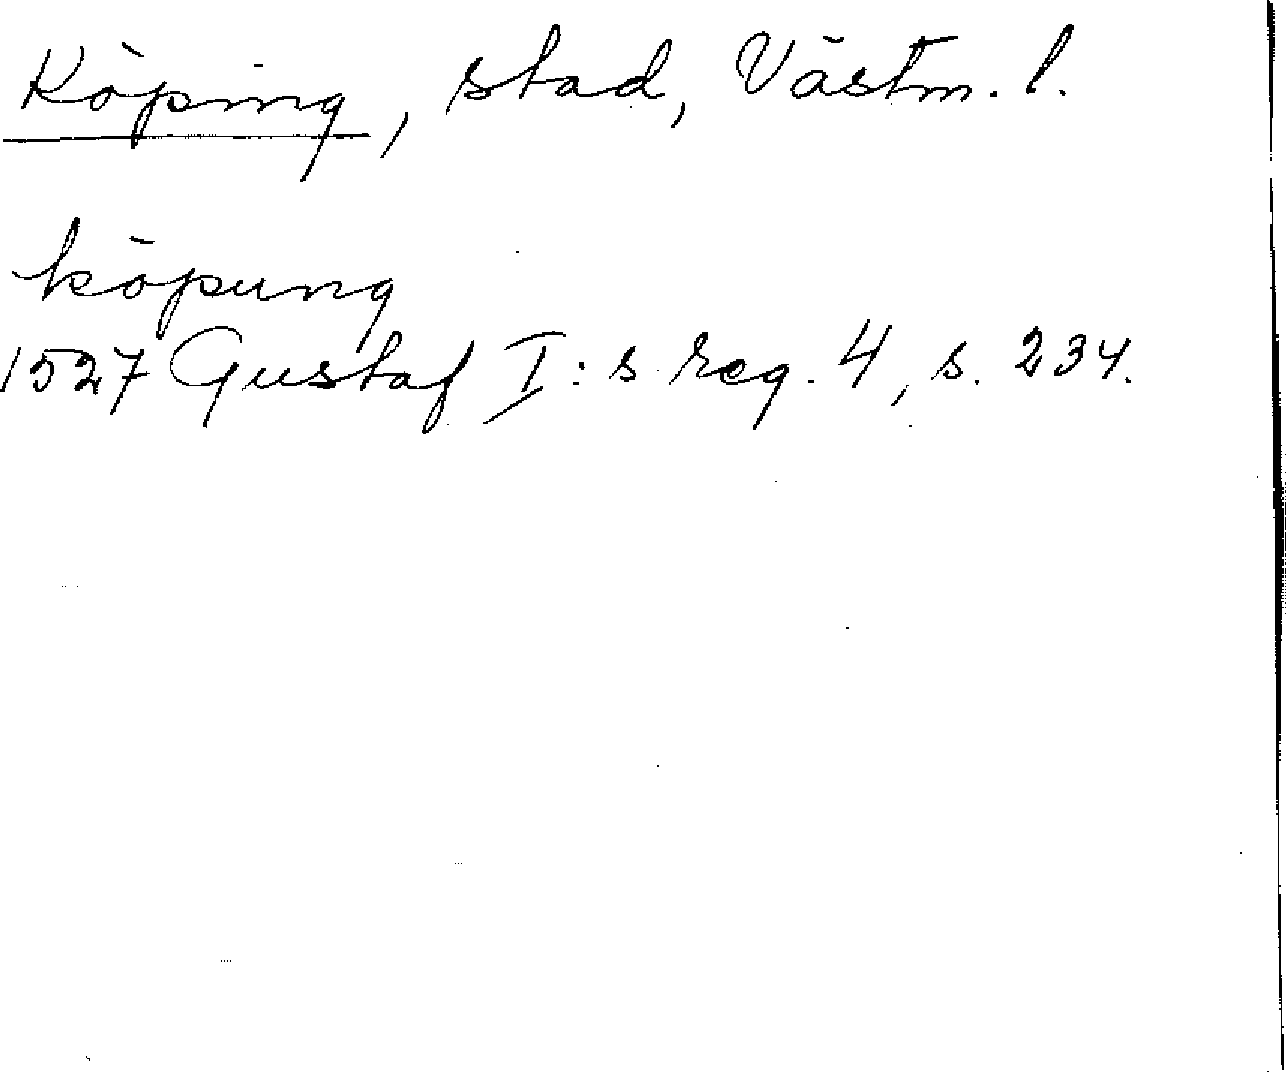 Köping, stad, Västm. l.
köpung
1527 Gustaf I:s reg. 4, s. 234.